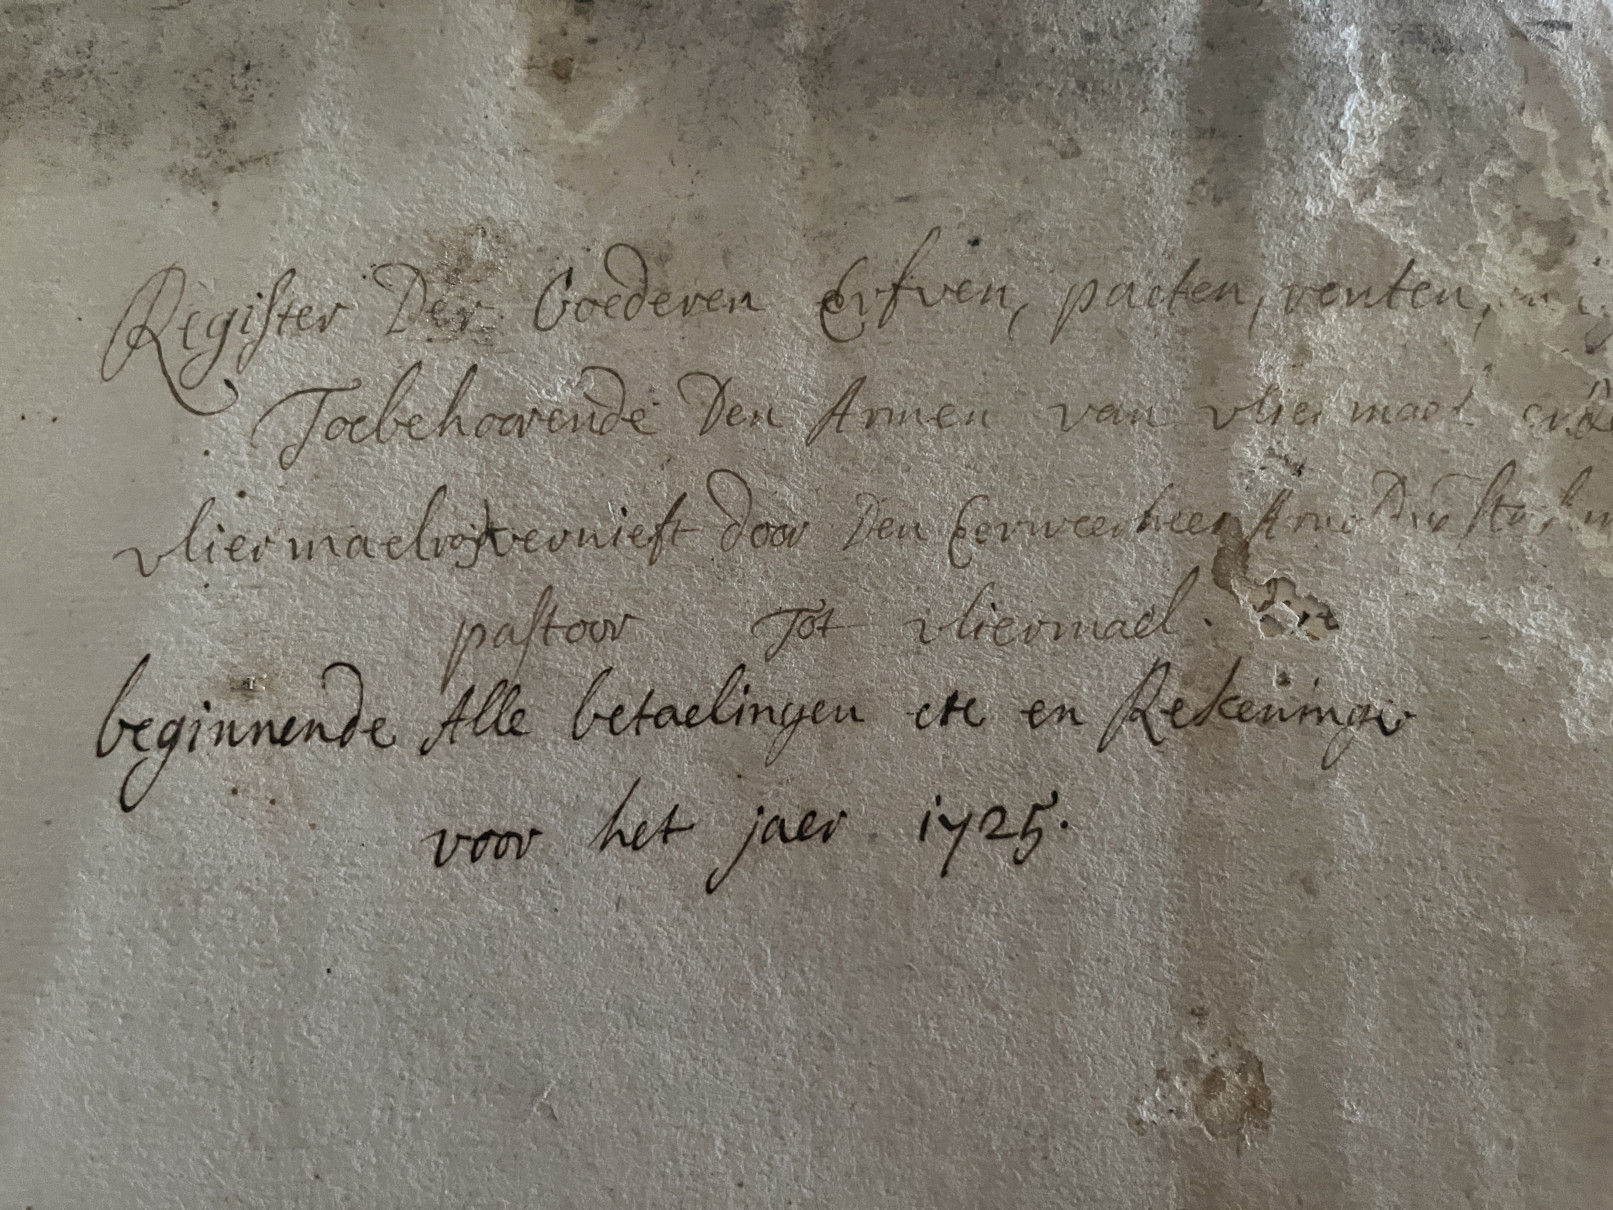 Register Der Goederen Erfven, pacten, renten,
Toebehoorende Den Armen van vliermael
vliermaelroy vernieft door Den Eerweerheer Arnoldus
pastoor Tot vliermael.
beginnende Alle betaelingen etc en Rekeninge
voor het jaer 1725.